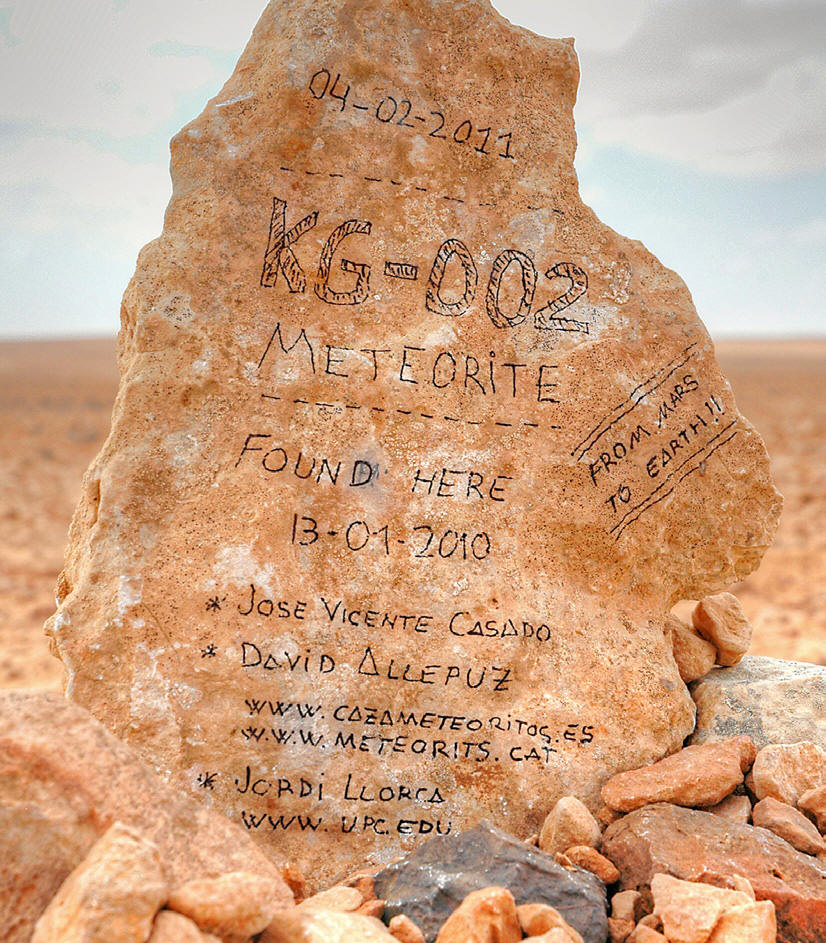 04-02-2011
KG-002
METEORITE
FROM MARS
TO EARTH!!
FOUND HERE
13-01-2010
* JOSE VICENTE CASADO
* DAVID ALLEPUZ
WWW.CAZAMETEORITOS.ES
WWW.METEORITS.CAT
* JORDI LLORCA
WWW.UPC.EDU